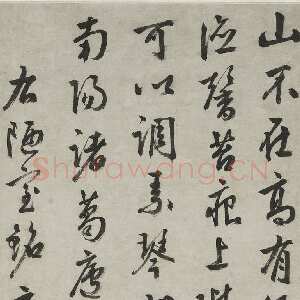 山不在高有
德馨苔痕上
可以调素琴
南陽諸葛廬
右陋室銘
Shufawang.CN